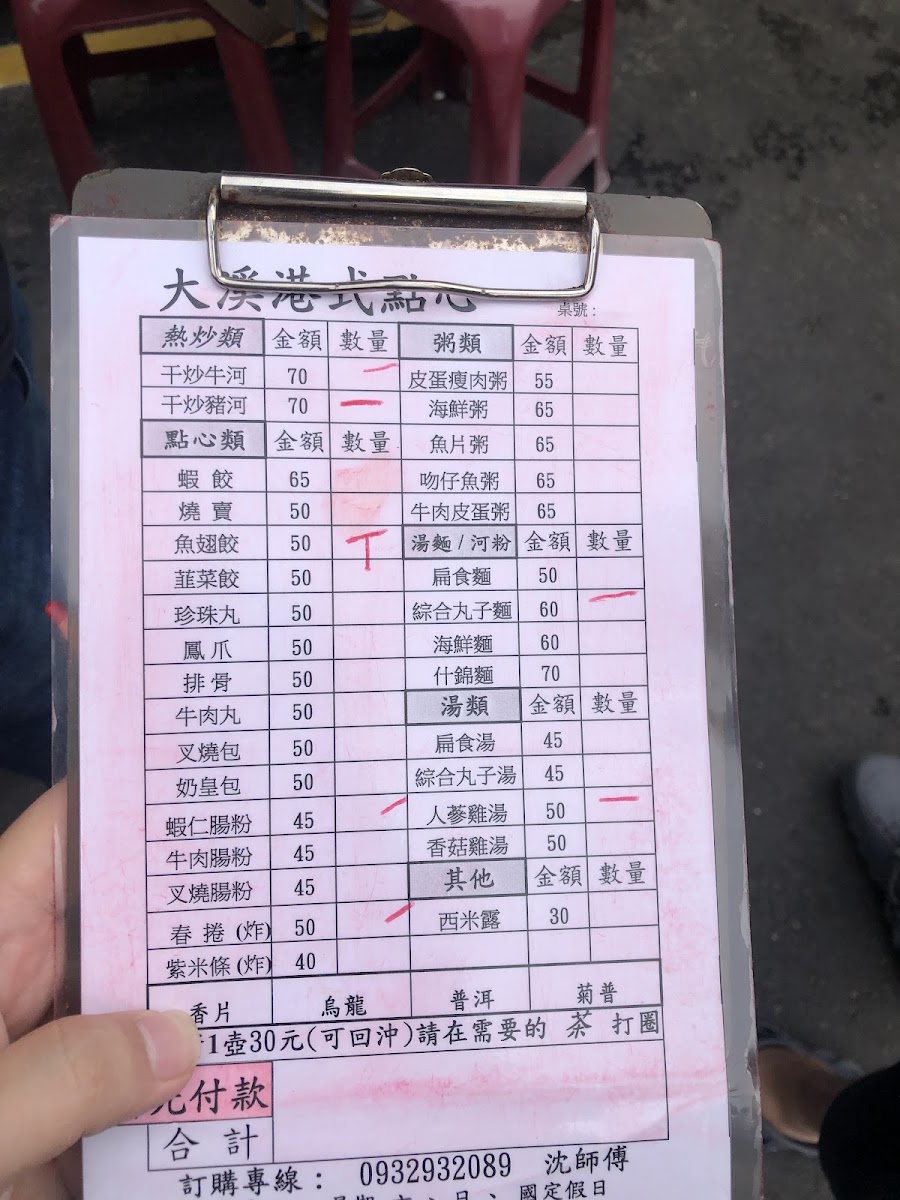 大溪港式點心
桌號：
熱炒類 金額 數量 粥類 金額 數量
干炒牛河 70 皮蛋瘦肉粥 55
干炒豬河 70 海鮮粥 65
點心類 金額 數量 魚片粥 65
蝦餃 65 吻仔魚粥 65
燒賣 50 牛肉皮蛋粥 65
魚翅餃 50 湯麵/河粉 金額 數量
韮菜餃 50 扁食麵 50
珍珠丸 50 綜合丸子麵 60
鳳爪 50 海鮮麵 60
排骨 50 什錦麵 70
牛肉丸 50 湯類 金額 數量
叉燒包 50 扁食湯 45
奶皇包 50 綜合丸子湯 45
蝦仁腸粉 45 人蔘雞湯 50
牛肉腸粉 45 香菇雞湯 50
叉燒腸粉 45 其他 金額 數量
春捲(炸) 50 西米露 30
紫米條(炸) 40
香片 烏龍 普洱 菊普
1壺30元(可回沖)請在需要的 茶 打圈
付款
合計
訂購專線： 0932932089 沈師傅
國定假日